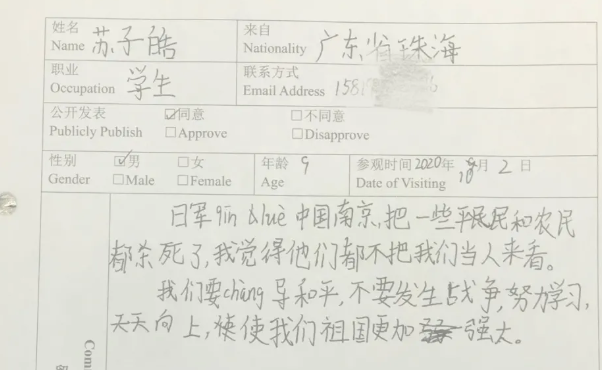 姓名 苏子皓 来自 广东省珠海
Name Nationality
职业 学生 联系方式
Occupation Email Address 158
公开发表 ☑同意 □不同意
Publicly Publish □Approve □Disapprove
性别 ☑男 □女 年龄 9 参观时间 2020年 10月 2日
Gender □Male □Female Age Date of Visiting
日军qin lüè中国南京,把一些平民和农民
都杀死了,我觉得他们都不把我们当人来看。
我们要chàng导和平,不要发生战争,努力学习,
天天向上,使我们祖国更加强大。
Com